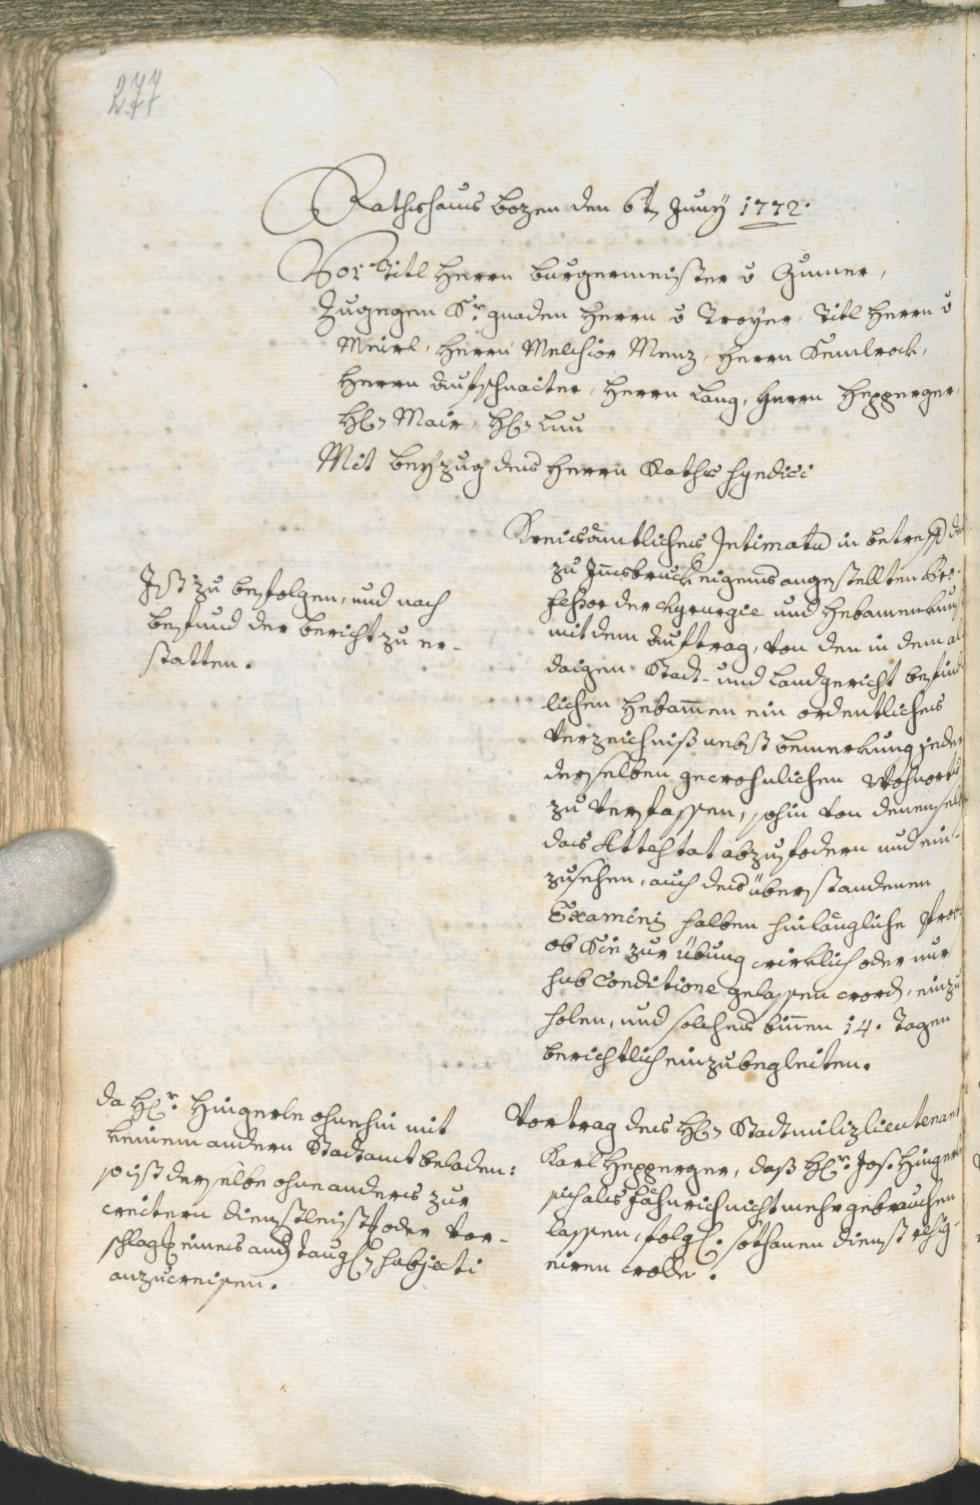 277
Rathshaus Bozen den 6t Juny 1772.
Vor Titl Herrn Burgermeister v Gumer,
Zugegen Sr gnaden Herrn v Troyer, Titl Herrn v
Meirl, Herrn Melchior Menz, Herrn Kemlrock,
Herrn Aufschnaiter, Herrn Lang, Herrn Hepperger,
H. Mair, H.
Mit beyzug des Herrn Raths Syndici
Ist zu befolgen, und nach
befund der bericht zu er-
statten.
Kreisämtliches Intimatum in betreff des
zu Innsbruck eigends angestellten Pro-
fessor der Chyrurgie und Hebamenkunst
mit dem Auftrag, von den in dem al-
daigen Stadt- und Landgericht befind-
lichen Hebammen ein ordentliches
Verzeichniß nebst bemerkung jeder
derselben gewohnlichen Wohnorts
zu verfassen, sohin von denenselben
das Attestat abzufodern und ein-
zusehen, auch des überstandenen
Examinis halben hinlängliche
ob Sie zur übung wirklich oder nur
sub Conditione gelassen word, einzu
holen, und solches binnen 14. Tagen
berichtlich einzubegleiten.
da Hr. Hingerle ohnehin mit
keinem andern Stadtamt beladen:
so ist derselbe ohne anders zur
weitern dienstleist oder vor-
schlag eines and taugl Subjecti
anzuweisen.
Vortrag des H. Stadtmilizlieutenant
Karl Hepperger, daß Hr. Jos. Hingerl
sich als Fähnrich nicht mehr gebrauchen
lassen, folgl. sothanen dienst resig-
niren wolle.